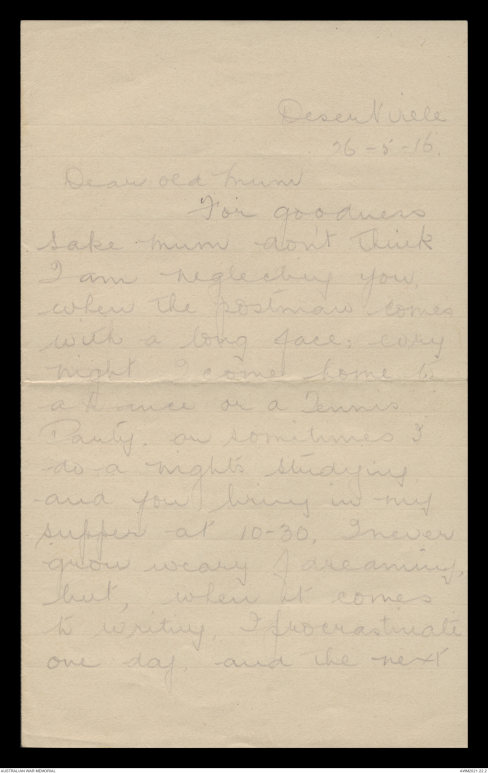 Deserville
26-5-16.
Dear old Mum
For goodness
sake Mum don't think
I am neglecting you,
when the postman comes
with a long face; every
night I come home to
a dance or a Tennis
Party. or sometimes I
do a nights studying
and you bring in my
supper at 10-30, I never
grow weary of dreaming,
but, when it comes
to writing, I procrastinate
one day, and the next
AUSTRALIAN WAR MEMORIAL